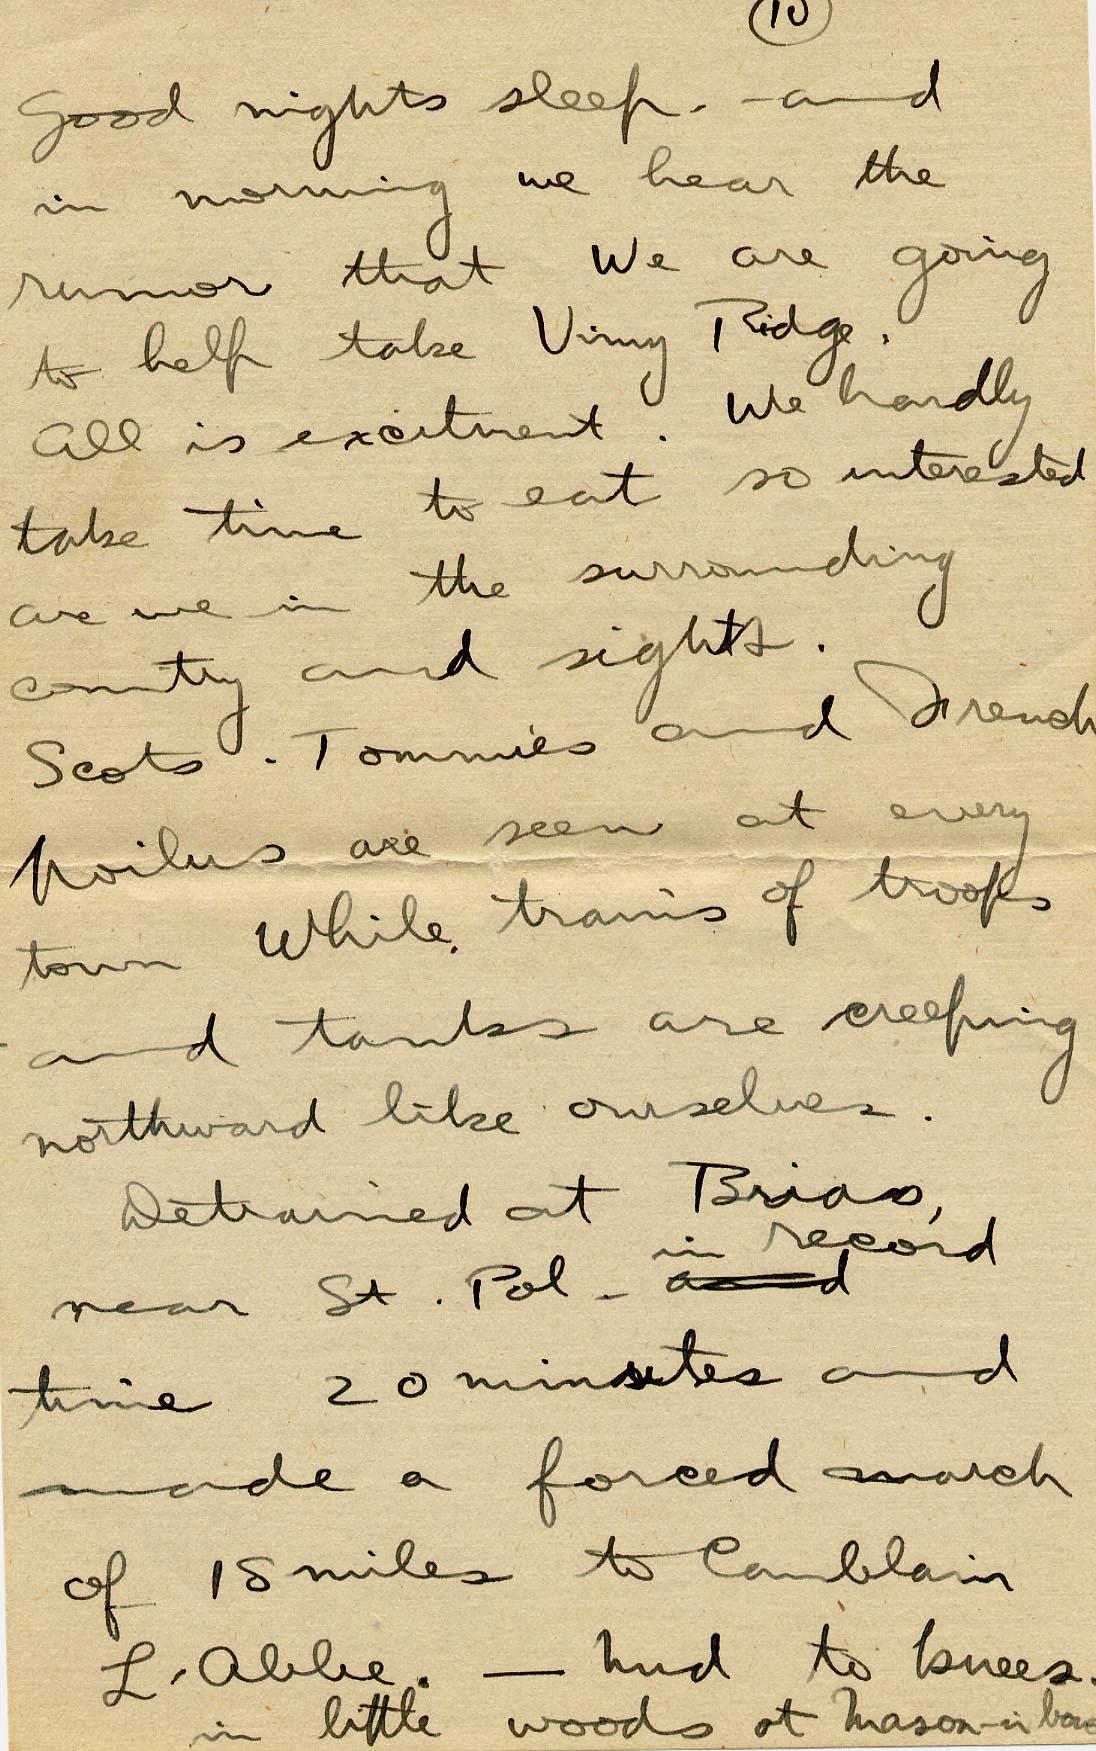 10
Good nights sleep. - and
in morning we hear the
rumor that We are going
to help take Vimy Ridge.
All is excitment. We hardly
take time to eat so interested
are we in the surrounding
country and sights.
Scots. Tommies and French
poilus are seen at every
town While trains of troops
and tanks are creeping
northward like ourselves.
Detrained at Brias,
in record
near St. Pol - and
time 20 minutes and
made a forced march
of 18 miles to Camblain
L'Abbe. — Mud to knees.
in little woods at Mason-in